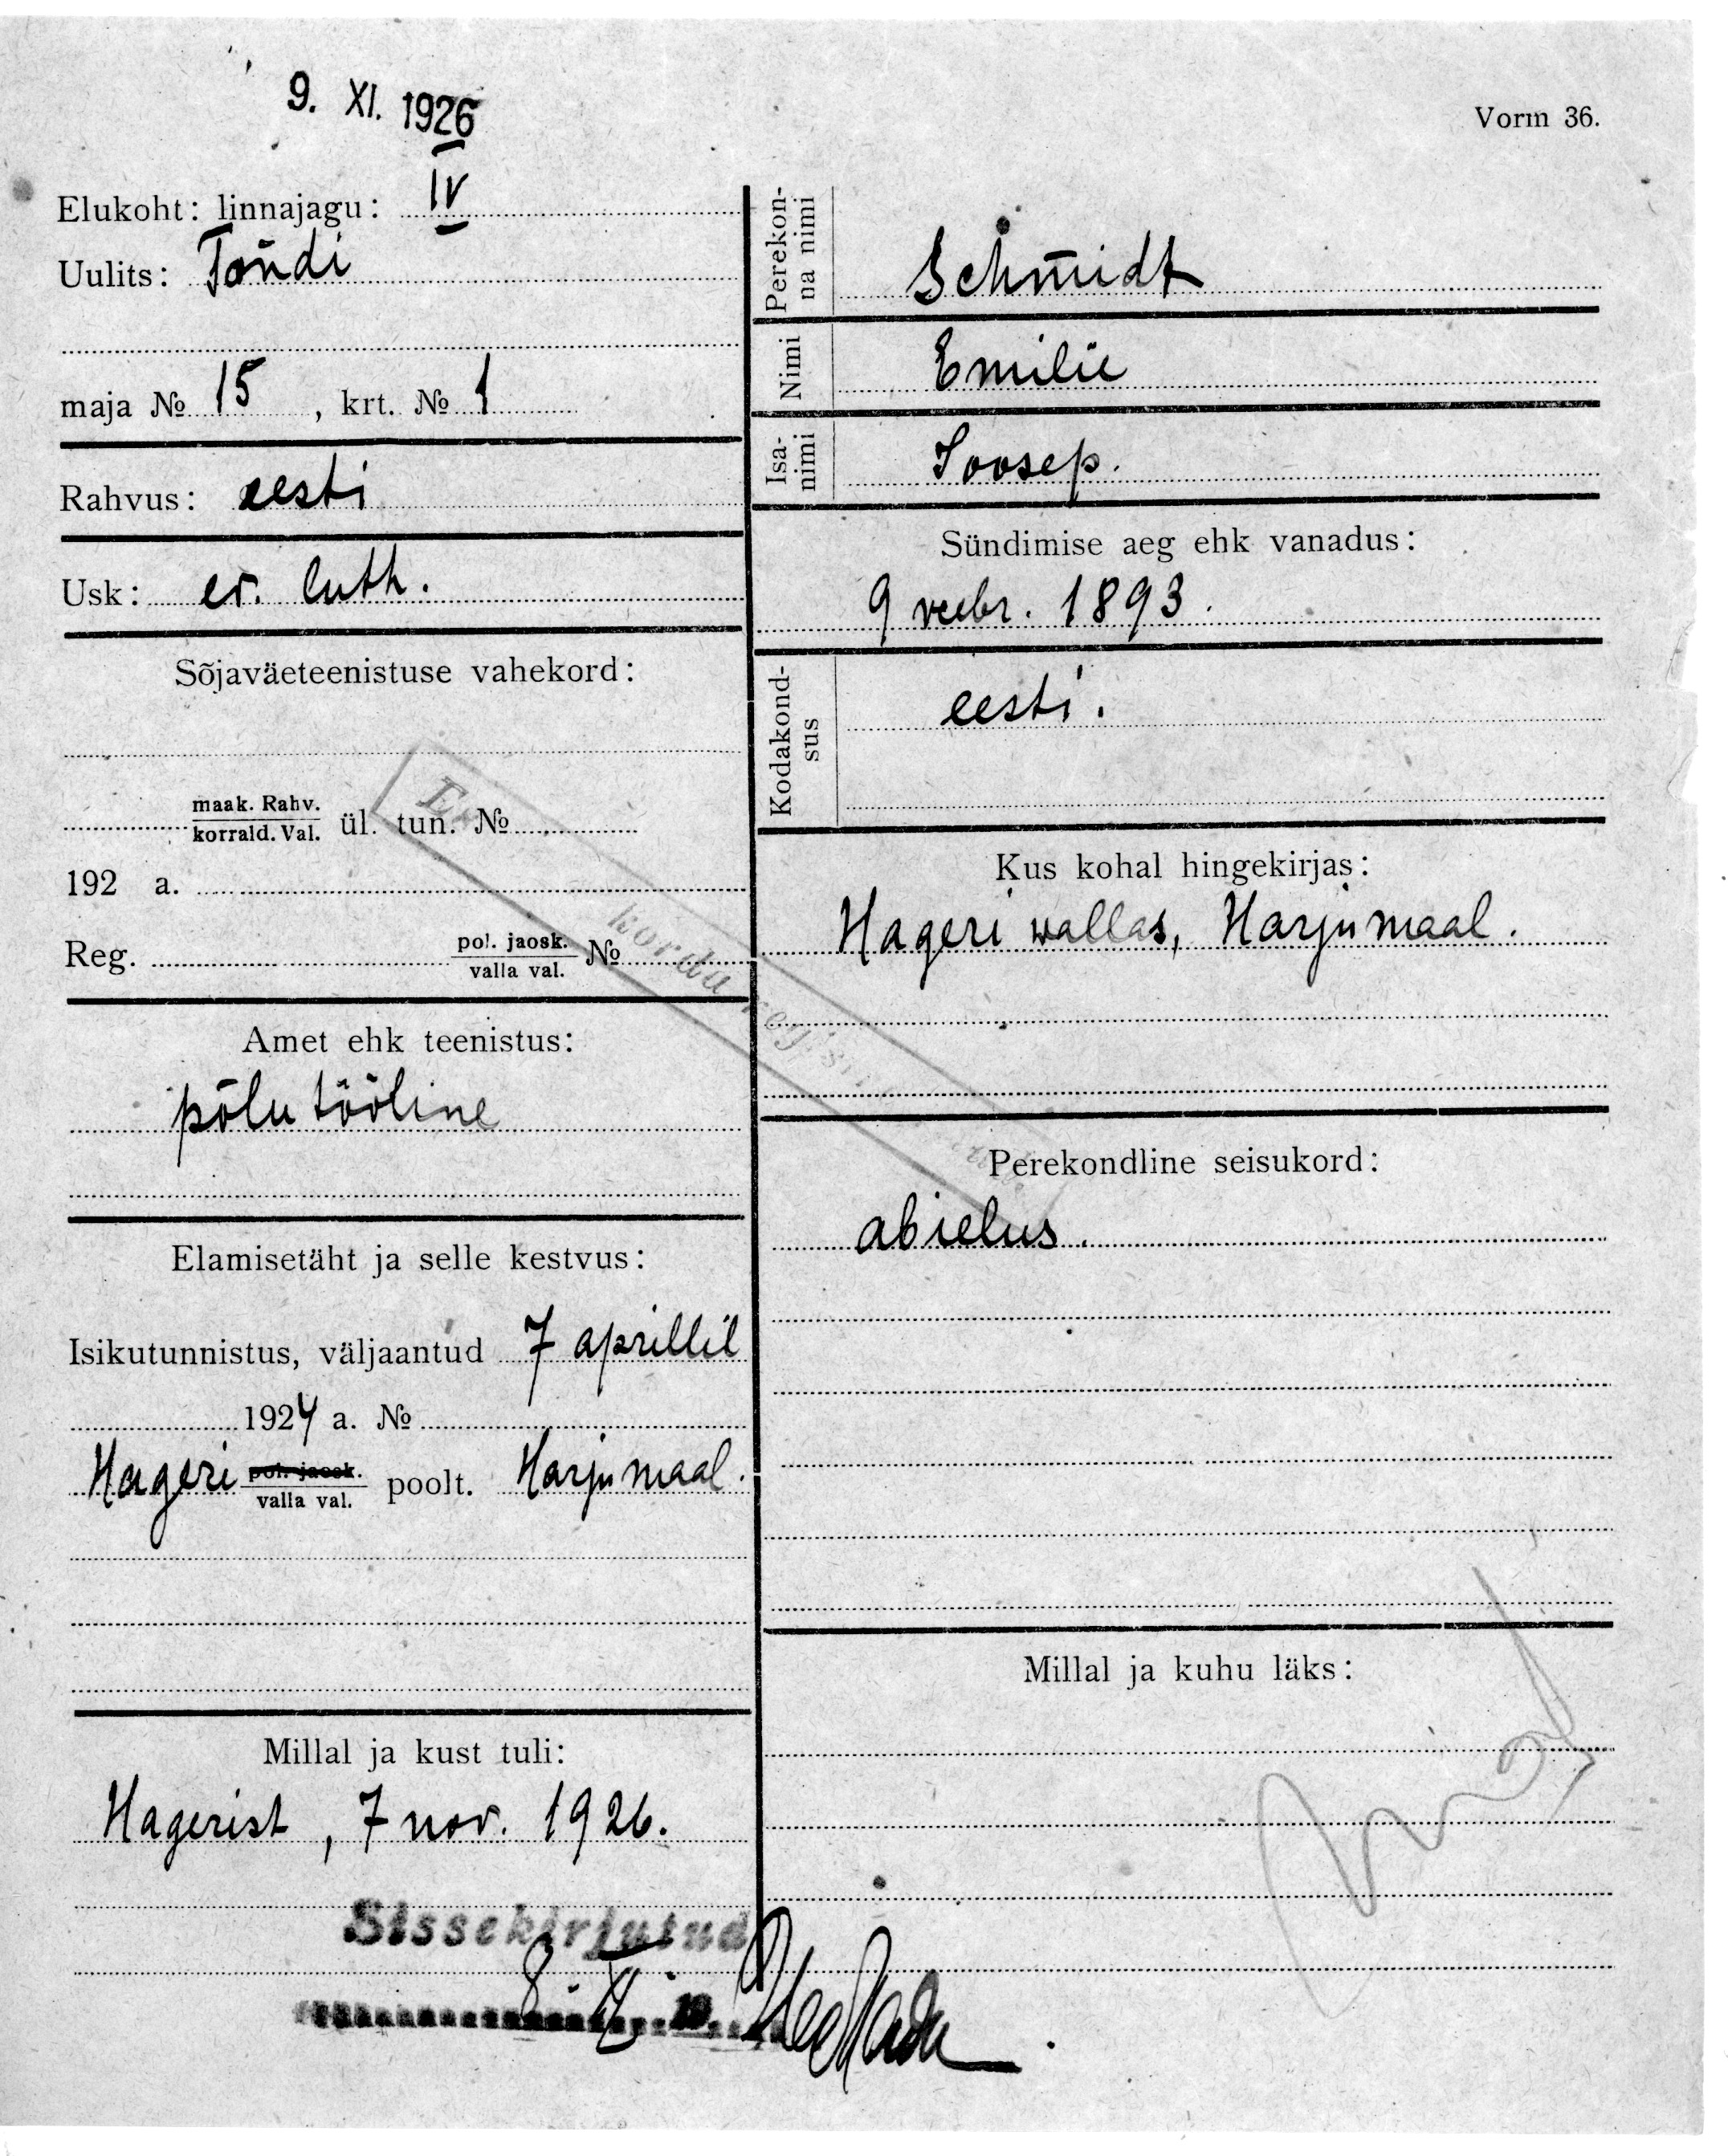 9. XI. 1926
Vorm 36.
Elukoht: linnajagu: IV
Uulits: Tondi
maja № 15, krt. № 1
Rahvus: eesti
Usk: ev. luth.
Sõjaväeteenistuse vahekord:
maak. Rahv.
korrald. Val. ül. tun. №
192 a.
Reg. pol. jaosk. №
valla val.
Amet ehk teenistus:
põlu tööline
Elamisetäht ja selle kestvus:
Isikutunnistus, väljaantud 7 aprillil
1924 a. №
Hageri pol. jaosk. poolt. Harjumaal.
valla val.
Millal ja kust tuli:
Hagerist, 7 nov. 1926.
Sissekirjutud
8 XI 19
Perekon-
na nimi
Schmidt
Nimi
Emilie
Isa-
nimi
Joosep.
Sündimise aeg ehk vanadus:
9 veebr. 1893.
Kodakond-
sus
eesti.
Kus kohal hingekirjas:
Hageri wallas, Harjumaal.
Perekondline seisukord:
abielus.
Millal ja kuhu läks:
korda